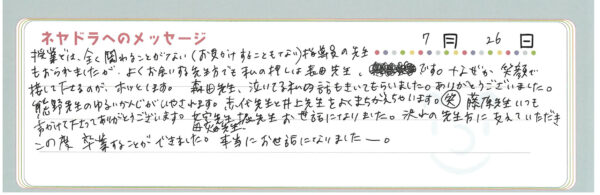 ネヤドラへのメッセージ 7月26日
授業では、全く関わることがない(お見かけすることもない)指導員の先生
もおられましたが、よくお会いする先生方でも私の押しは 田先生、です。なぜか笑顔で
接して下さるのが、ホッとします。森田先生、泣いてる私の話をきいてもらいました。ありがとうございました。
熊野先生のゆるいかんじがいやされます。 先生と井上先生をよくまちがえちゃいます。(笑) 藤原先生いつも
声かけて下さってありがとうございます。 先生、堀先生お世話になりました。沢山の先生方に支えていただき
この度 卒業することができました。本当にお世話になりましたー。